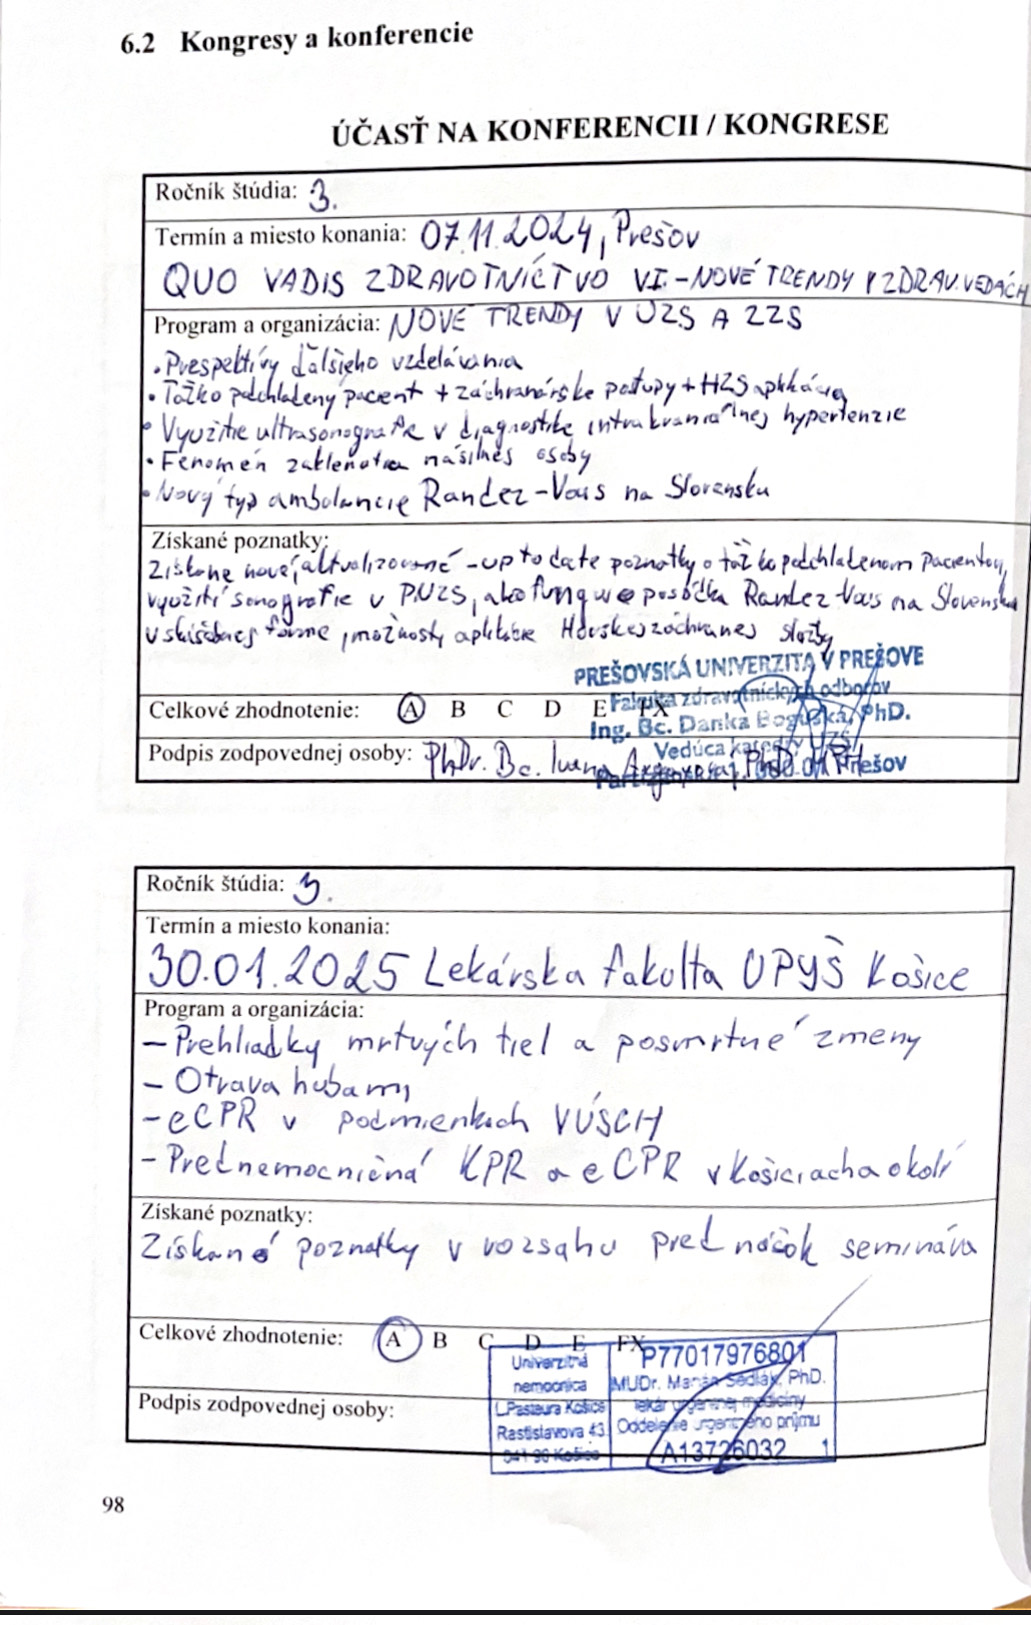 6.2 Kongresy a konferencie
ÚČASŤ NA KONFERENCII / KONGRESE
Ročník štúdia: 3.
Termín a miesto konania: 07.11.2024, Prešov
QUO VADIS ZDRAVOTNÍCTVO VI. - NOVÉ TRENDY V ZDRAV. VEDÁCH
Program a organizácia: NOVÉ TRENDY V UZS A ZZS
• Prespektívy ďalšieho vzdelávania
• Ťažko podchladený pacient + záchranárske postupy + HZS aplikácia
• Využitie ultrasonografie v diagnostike intrakraniálnej hypertenzie
• Fenomén zakleňatia násilnej osoby
• Nový typ ambulancie Randez-Vous na Slovensku
Získané poznatky:
Získané nové, aktualizované - up to date poznatky o ťažko podchladenom pacientovi,
využití sonografie v PUZS, ako funguje posádka Randez-Vous na Slovensku
v skúšobnej forme, možnosty aplikácie Horskej záchranej služby
PREŠOVSKÁ UNIVERZITA V PREŠOVE
Fakulta zdravotníckych odborov
Celkové zhodnotenie: A B C D E FX
Ing. Bc. Danka Boguská, PhD.
Vedúca katedry UZS
Podpis zodpovednej osoby: PhDr. Bc. Ivana PhD. MPH
Prešov
Ročník štúdia: 3.
Termín a miesto konania:
30.01.2025 Lekárska fakulta UPYŠ Košice
Program a organizácia:
- Prehliadky mrtvých tiel a posmrtné zmeny
- Otrava hubamy
- eCPR v podmienkach VÚSCH
- Prednemocničná KPR a eCPR v Košiciach a okolí
Získané poznatky:
Získané poznatky v rozsahu prednáčok seminára
Celkové zhodnotenie: A B C D E FX
Univerzitná
nemocnica
L.Pasteura Košice
Rastislavova 43
041 90 Košice
P77017976801
MUDr. Marián Sedlák, PhD.
lekár urgentnej medicíny
Oddelenie urgentného príjmu
A13726032 1
Podpis zodpovednej osoby:
98